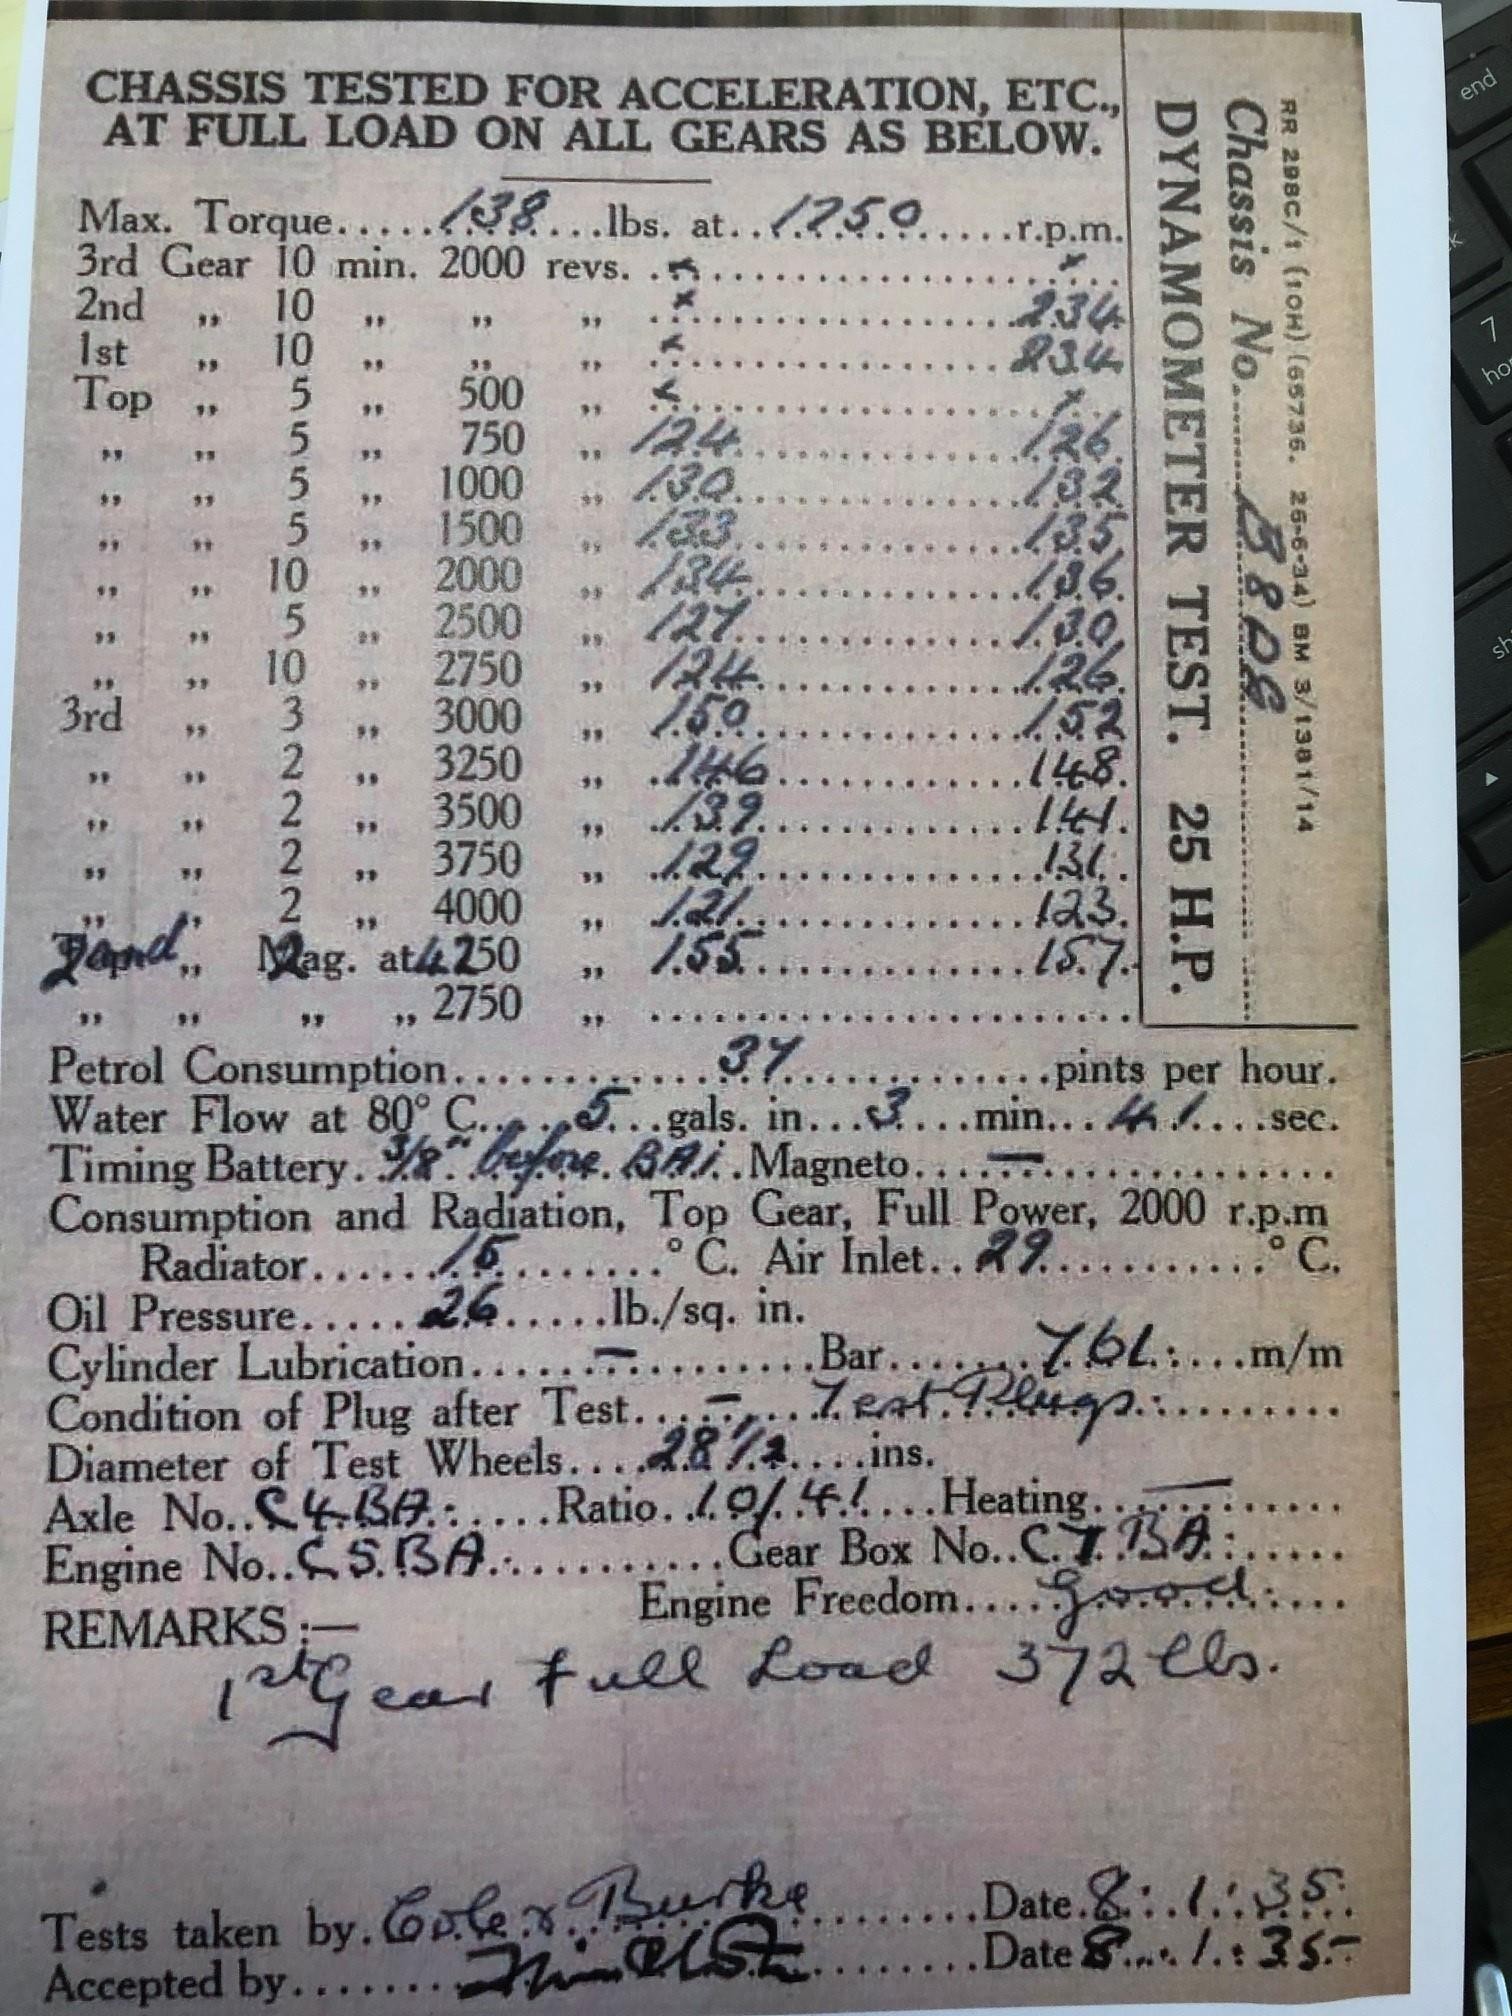 CHASSIS TESTED FOR ACCELERATION, ETC.,
AT FULL LOAD ON ALL GEARS AS BELOW.
Max. Torque.....138....lbs. at..1750.......r.p.m.
3rd Gear 10 min. 2000 revs. ..x..............................x
2nd „ 10 „ „ „ x 234
1st „ 10 „ „ „ x 234
Top „ 5 „ 500 „ x x
„ „ 5 „ 750 „ 124 126
„ „ 5 „ 1000 „ 130 132
„ „ 5 „ 1500 „ 133 135
„ „ 10 „ 2000 „ 134 136
„ „ 5 „ 2500 „ 127 130
„ „ 10 „ 2750 „ 124 126
3rd „ 3 „ 3000 „ 150 152
„ „ 2 „ 3250 „ 146 148
„ „ 2 „ 3500 „ 139 141
„ „ 2 „ 3750 „ 129 131
„ „ 2 „ 4000 „ 121 123
2nd „ 2 Mag. at 4250 „ 155 157
„ „ „ „ 2750 „
Petrol Consumption 37 pints per hour.
Water Flow at 80° C. 5 gals. in 3 min. 41 sec.
Timing Battery 3/8" before BAI. Magneto —
Consumption and Radiation, Top Gear, Full Power, 2000 r.p.m
Radiator 15 °C. Air Inlet 29 °C.
Oil Pressure 26 lb./sq. in.
Cylinder Lubrication — Bar 761 m/m
Condition of Plug after Test — Test Plugs.
Diameter of Test Wheels 28 1/2 ins.
Axle No. C4.BA. Ratio 10/41 Heating —
Engine No. C5.BA. Gear Box No. C.7.BA.
Engine Freedom good.
REMARKS :—
1st Gear Full Load 372 lbs.
Tests taken by Burke Date 8.1.35.
Accepted by Date 8.1.35
DYNAMOMETER TEST. 25 H.P.
Chassis No. B80E
RR 298C/1 (10H) (65736. 26-6-34) BM 3/1381/14
end
7